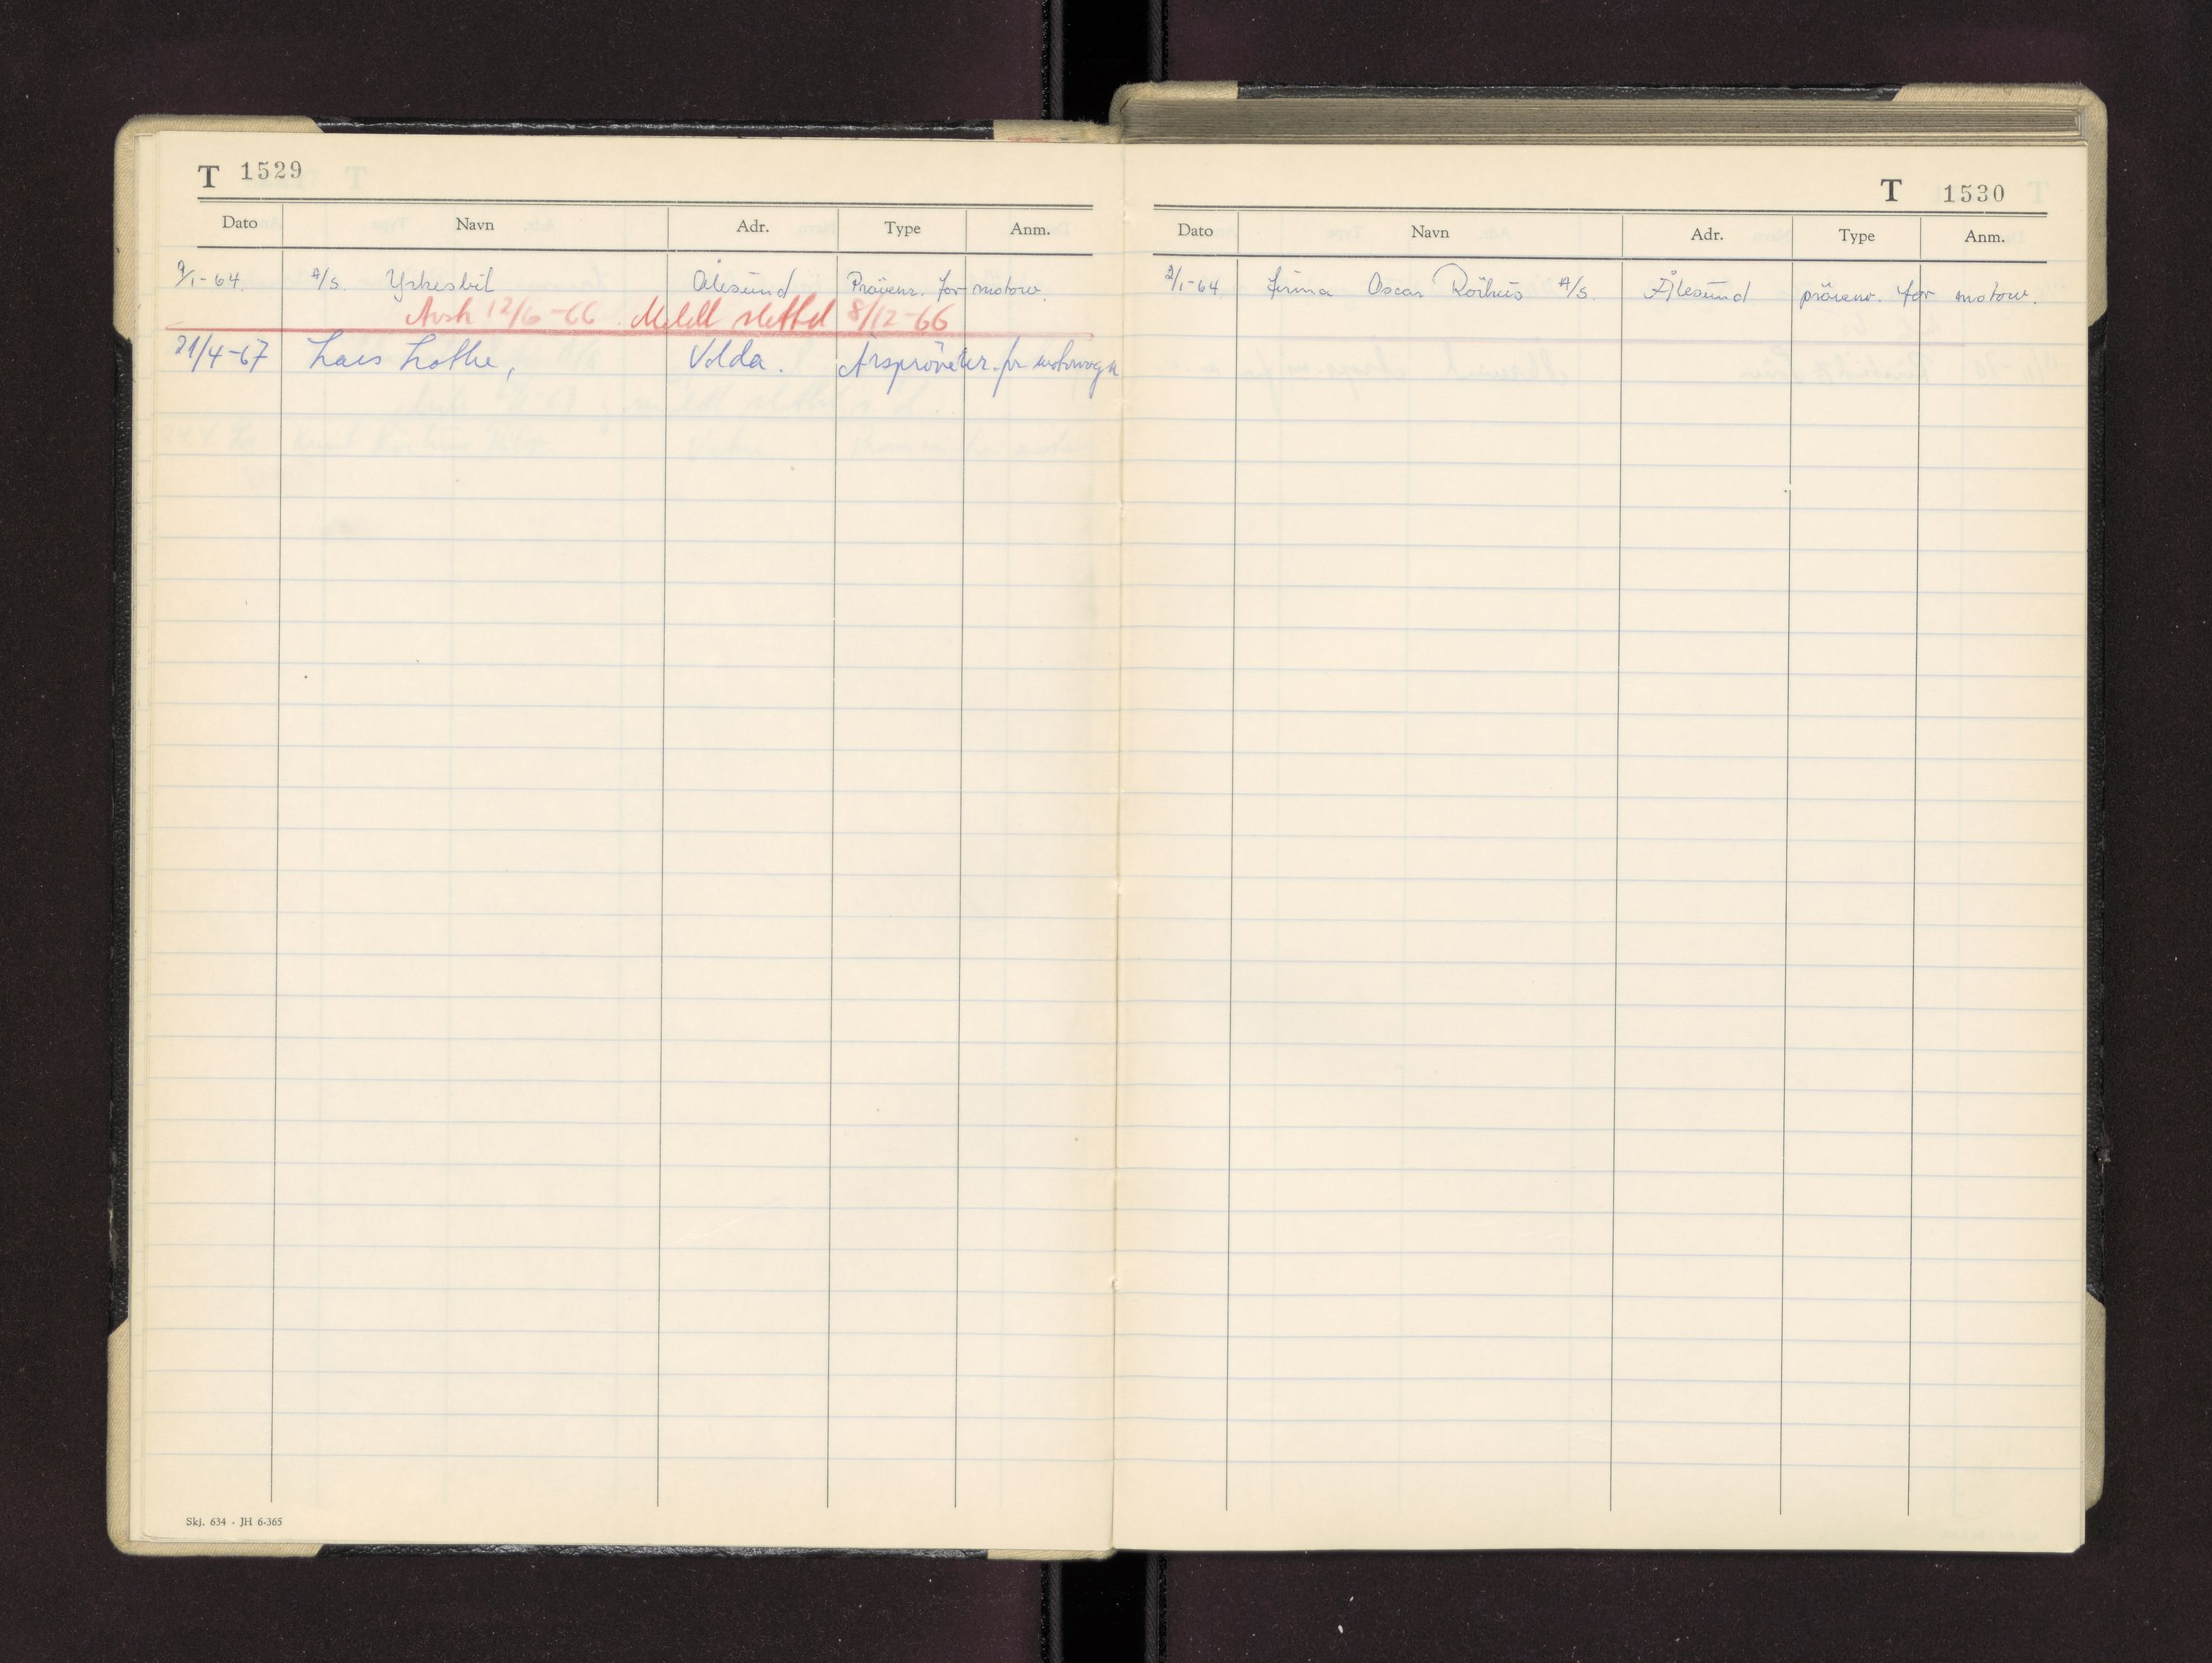 T 1529
Dato Navn Adr. Type Anm.
9/1-64. A/S. Yrkesbil Ålesund Prövenr. for motorv.
Avsk 12/6-66. Meldt slettet 8/12-66
21/4-67 Lars Lothe, Volda. Årsprövekr. for motorvogn
Skj. 634 - JH 6-365
T 1530
Dato Navn Adr. Type Anm.
2/1-64 Firma Oscar Rörhus A/S. Ålesund prövenr. for motorv.